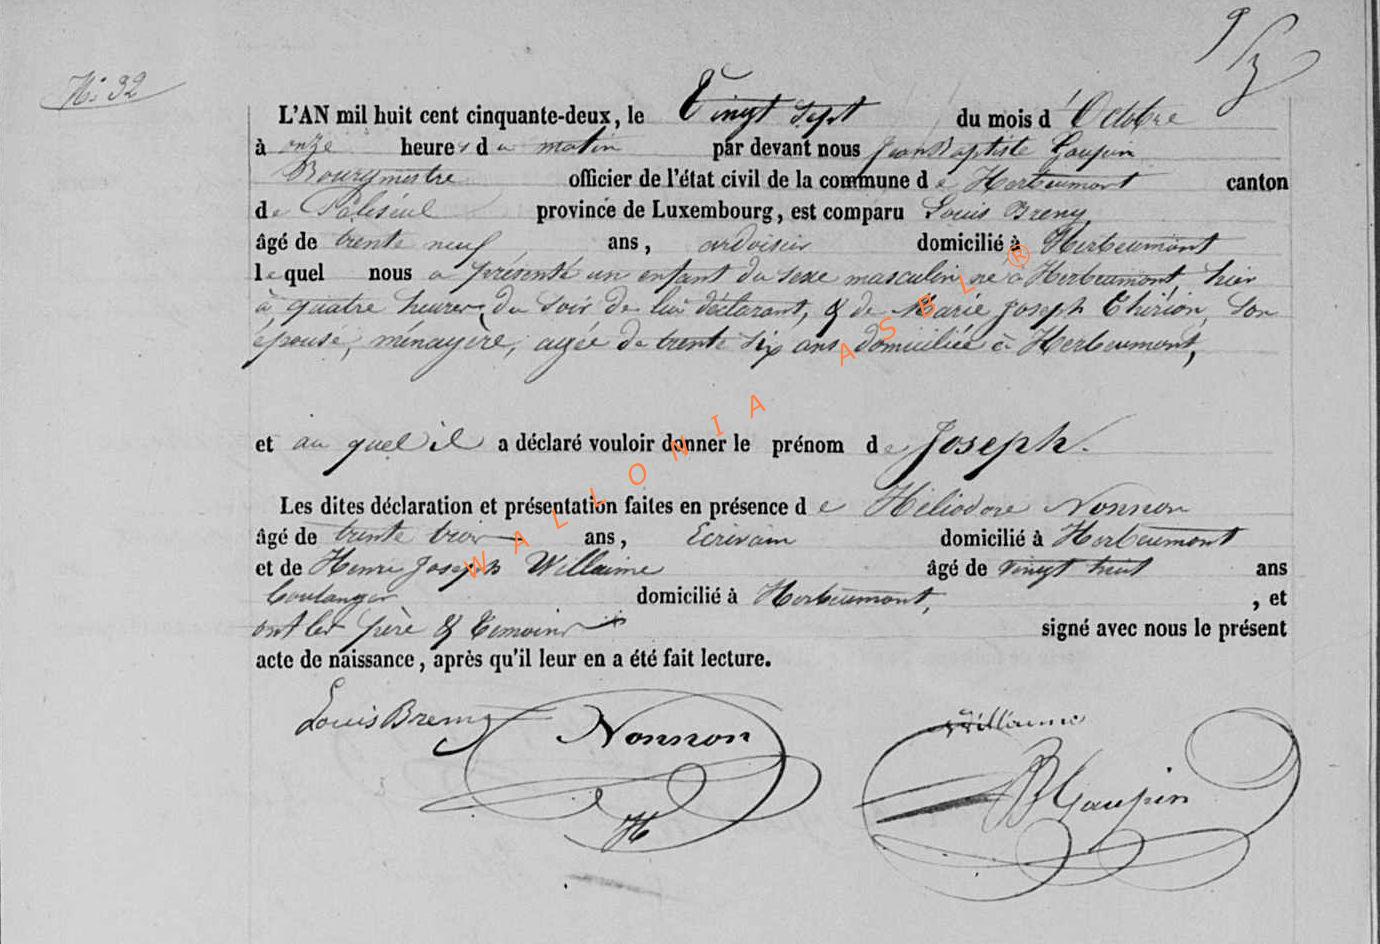 N° 32
L'AN mil huit cent cinquante-deux, le Vingt Sept du mois d'Octobre
à onze heures du matin par devant nous Jean Baptiste Gaupin
Bourgmestre officier de l'état civil de la commune de Herbeumont canton
de Paliseul province de Luxembourg, est comparu Louis Breny,
âgé de trente neuf ans, ardoisier domicilié à Herbeumont
lequel nous a présenté un enfant du sexe masculin né à Herbeumont, hier
à quatre heures du soir de lui déclarant, & de Marie Joseph Thirion, son
épouse, ménagère, agée de trente six ans domiciliée à Herbeumont,
et au quel il a déclaré vouloir donner le prénom de Joseph.
Les dites déclaration et présentation faites en présence de Héliodore Nonnon
âgé de trente trois ans, Ecrivain domicilié à Herbeumont
et de Henri Joseph Willaime âgé de vingt huit ans
boulanger domicilié à Herbeumont, , et
ont les père & témoins signé avec nous le présent
acte de naissance, après qu'il leur en a été fait lecture.
Louis Breny Nonnon Willaime
H
JB Gaupin
WALLONIA ASBL ®